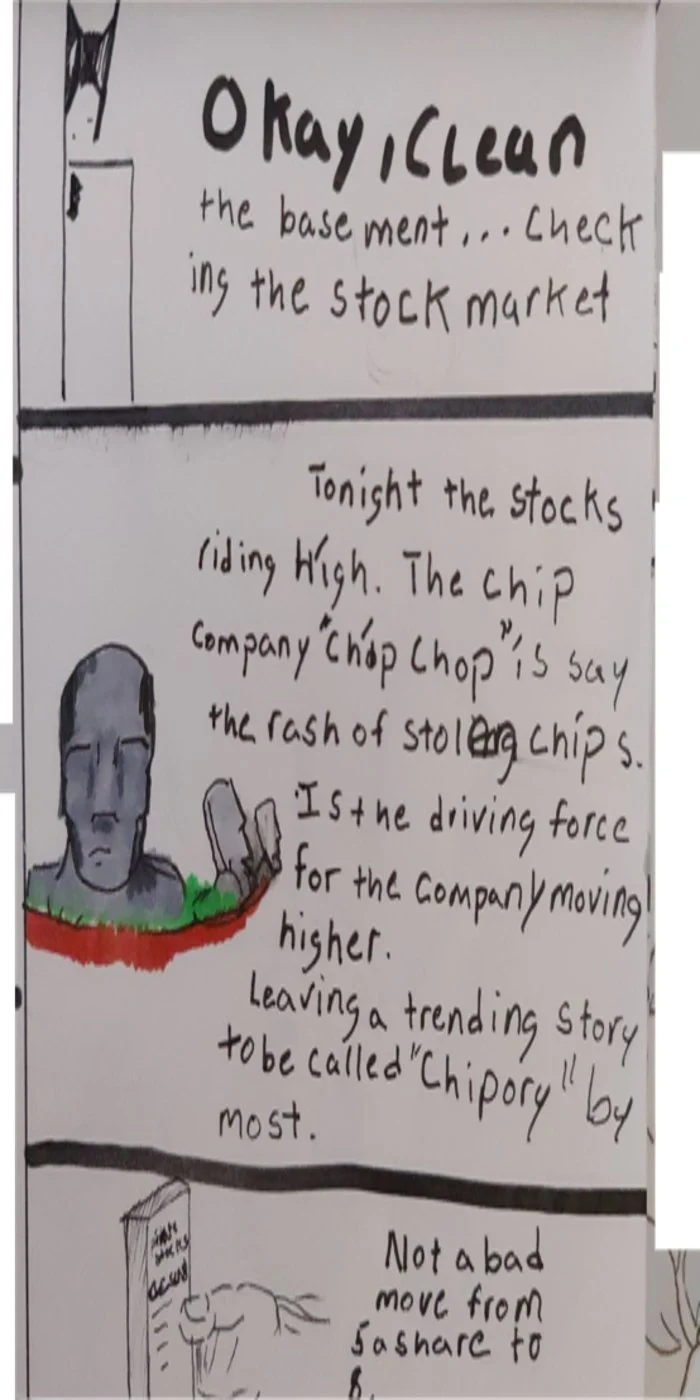 Okay, Clean
the basement... Check
ing the stock market
Tonight the stocks
riding High. The chip
company "Chop Chop" is say
the rash of stoleng chips.
Is the driving force
for the company moving
higher.
Leaving a trending story
to be called "Chipory" by
most.
Not a bad
move from
5 a share to
8.